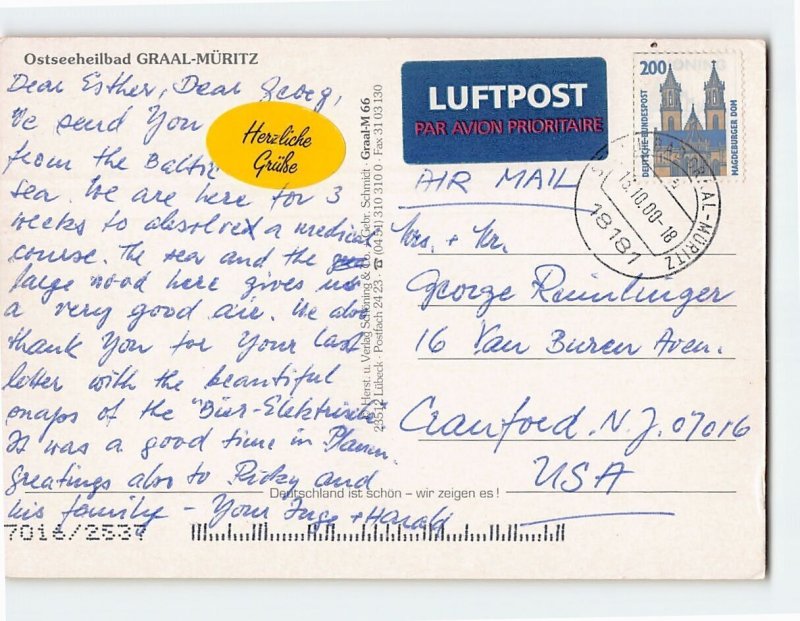 Ostseeheilbad GRAAL-MÜRITZ
Dear Esther, Dear Georg,
We send You
from the Baltic
sea. We are here for 3
weeks to absolved a medical
course. The sea and the
large wood here gives us
a very good air. We also
thank You for Your last
letter with the beautiful
snaps of the "Bier-Elektrische"
It was a good time in Plauen.
Greetings also to Ricky and
his family - Your Inge + Harald
7016/2537
Herzliche
Grüße
Herst. u. Verlag Schöning & Co. + Gebr. Schmidt · Graal-M 66
23512 Lübeck · Postfach 24 23 · ☎ (04 51) 310 310 0 · Fax 31 03 130
LUFTPOST
PAR AVION PRIORITAIRE
200
DEUTSCHE BUNDESPOST
MAGDEBURGER DOM
GRAAL-MÜRITZ
13.10.00-18
18181
AIR MAIL
Mrs. + Mr.
George
16 Van Buren Aven.
Cranford. N.J. 07016
USA
Deutschland ist schön – wir zeigen es !